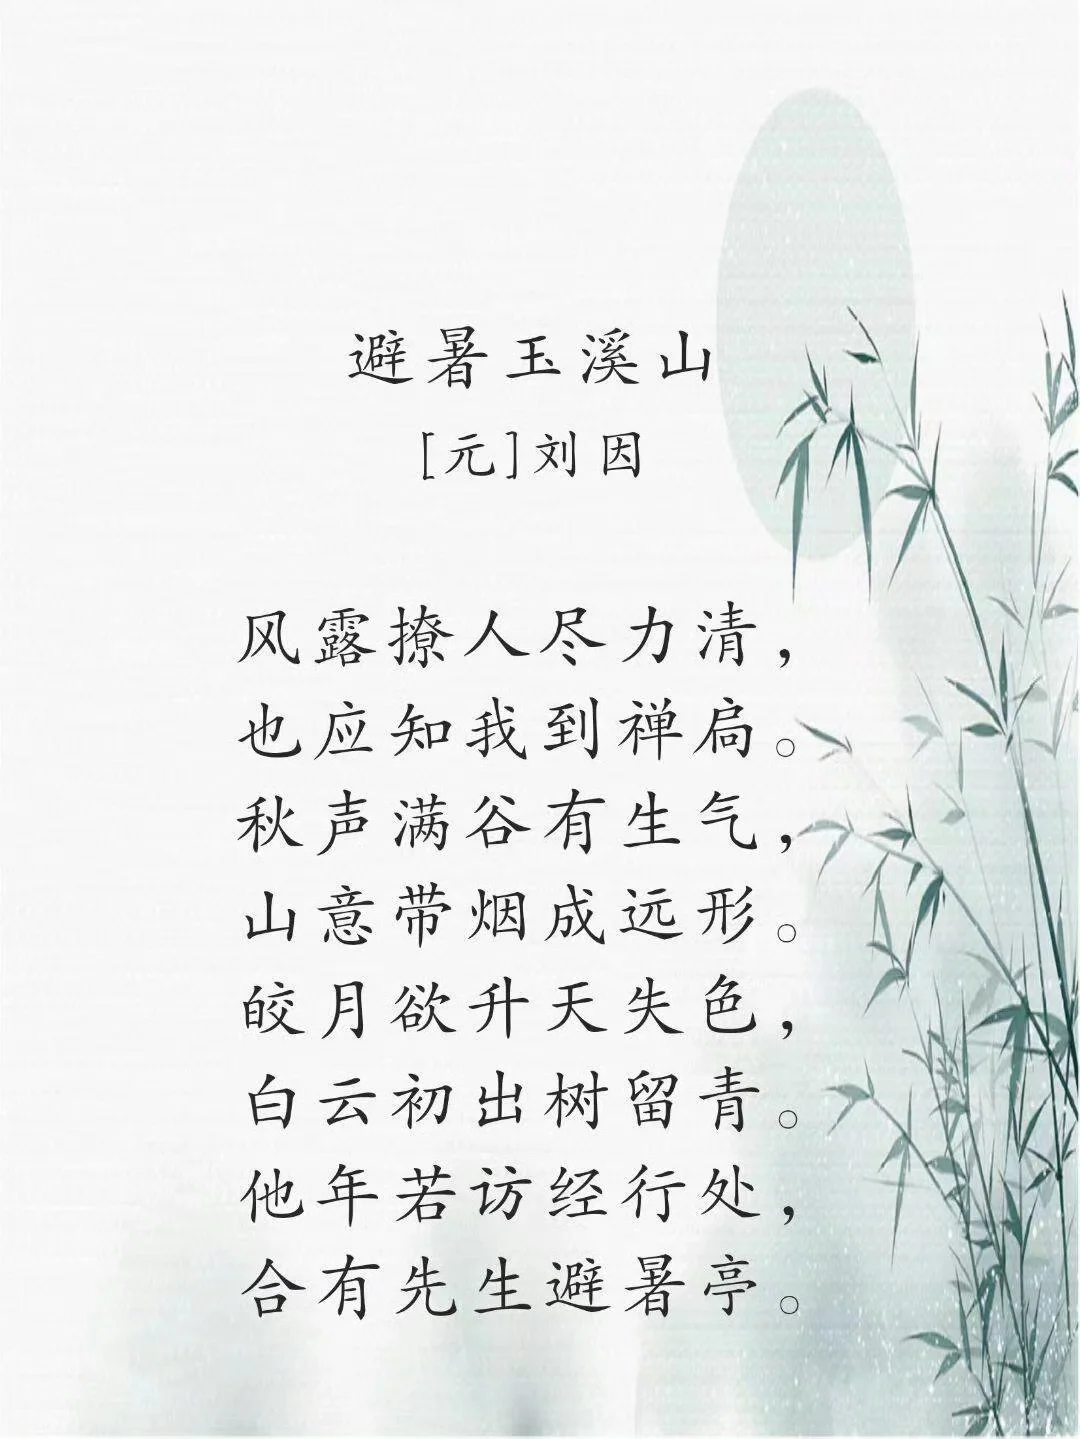 避暑玉溪山
[元]刘因
风露撩人尽力清，
也应知我到禅扃。
秋声满谷有生气，
山意带烟成远形。
皎月欲升天失色，
白云初出树留青。
他年若访经行处，
合有先生避暑亭。